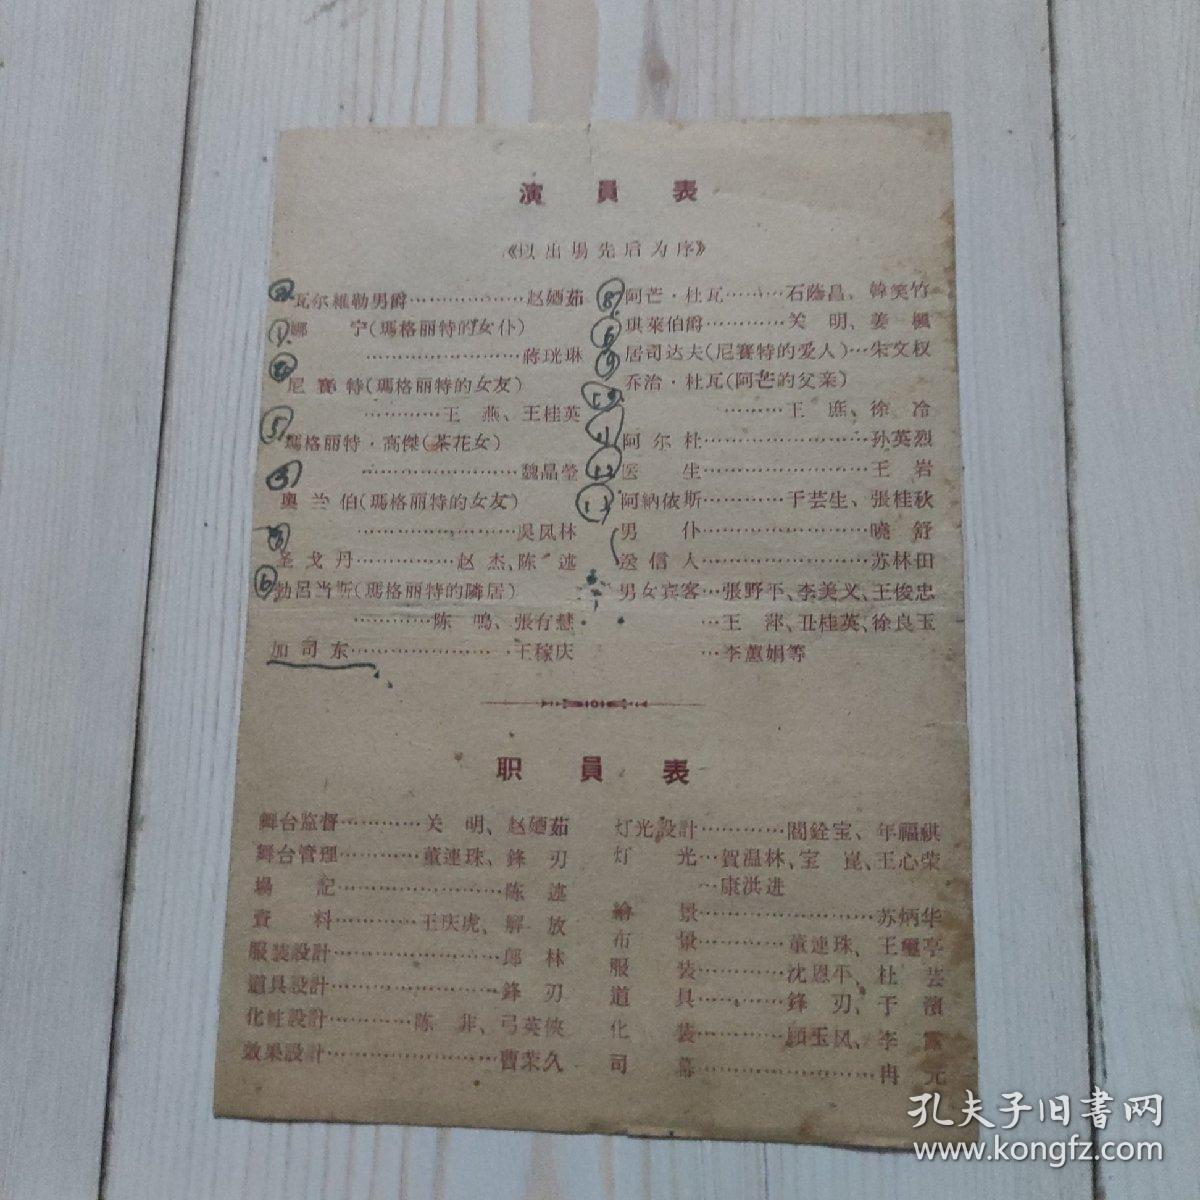 演員表
《以出場先后为序》
瓦尔維勒男爵……………赵廼茹
娜　宁(瑪格丽特的女仆)
……………………蔣珖琳
尼賽特(瑪格丽特的女友)
…………王　燕、王桂英
瑪格丽特·高傑(茶花女)
……………………魏晶瑩
奧兰伯(瑪格丽特的女友)
……………………吳凤林
圣戈丹……………赵　杰、陈　述
勃呂当斯(瑪格丽特的隣居)
…………陈　鳴、張有慧
加司东……………………王稼庆
⑧阿芒·杜瓦………石蔭昌、韓笑竹
琪萊伯爵…………关　明、姜　楓
⑨居司达夫(尼賽特的爱人)…朱文权
10乔治·杜瓦(阿芒的父亲)
………王　庶、徐　冷
11阿尔杜……………………孙英烈
12医　生……………………王　岩
13阿納依斯…………于芸生、張桂秋
男　仆……………………曉　舒
送信人……………………苏林田
男女宾客…張野平、李美义、王俊忠
…王　萍、丑桂英、徐良玉
…李蕙娟等
职員表
舞台监督…………关　明、赵廼茹
舞台管理…………董連珠、鋒　刃
場　記……………………陈　述
資　料…………王庆虎、解　放
服装設計……………………郎　林
道具設計……………………鋒　刃
化妝設計…………陈　非、弓英俠
效果設計……………………曹荣久
灯光設計…………閻銓宝、年福祺
灯　光…賀温林、宝　崑、王心荣
…康洪进
繪　景……………………苏炳华
布　景…………董連珠、王璽亭
服　装…………沈恩平、杜　芸
道　具…………鋒　刃、于　濱
化　装…………顧玉风、李　露
司　幕……………………冉　元
孔夫子旧書网
www.kongfz.com